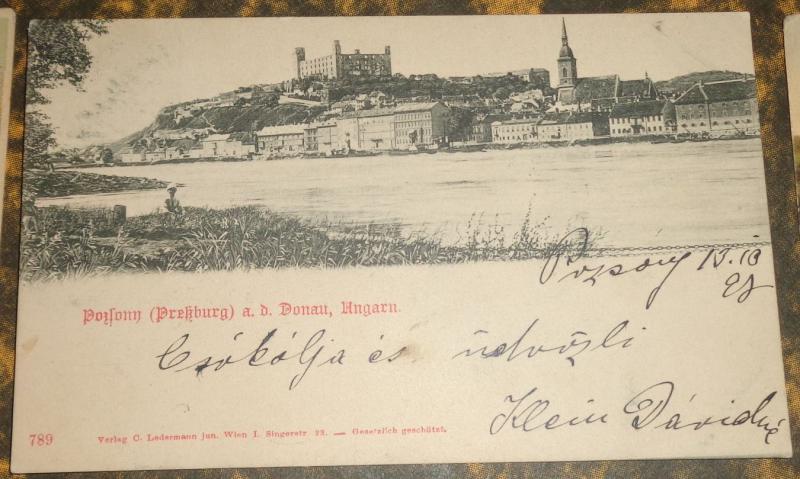 Pozsony 13.10
98
Pozsony (Preßburg) a. d. Donau, Ungarn.
Csókólja és üdvözli
Klein Dávidné
789 Verlag C. Ledermann jun. Wien I. Singerstr. 23. — Gesetzlich geschützt.